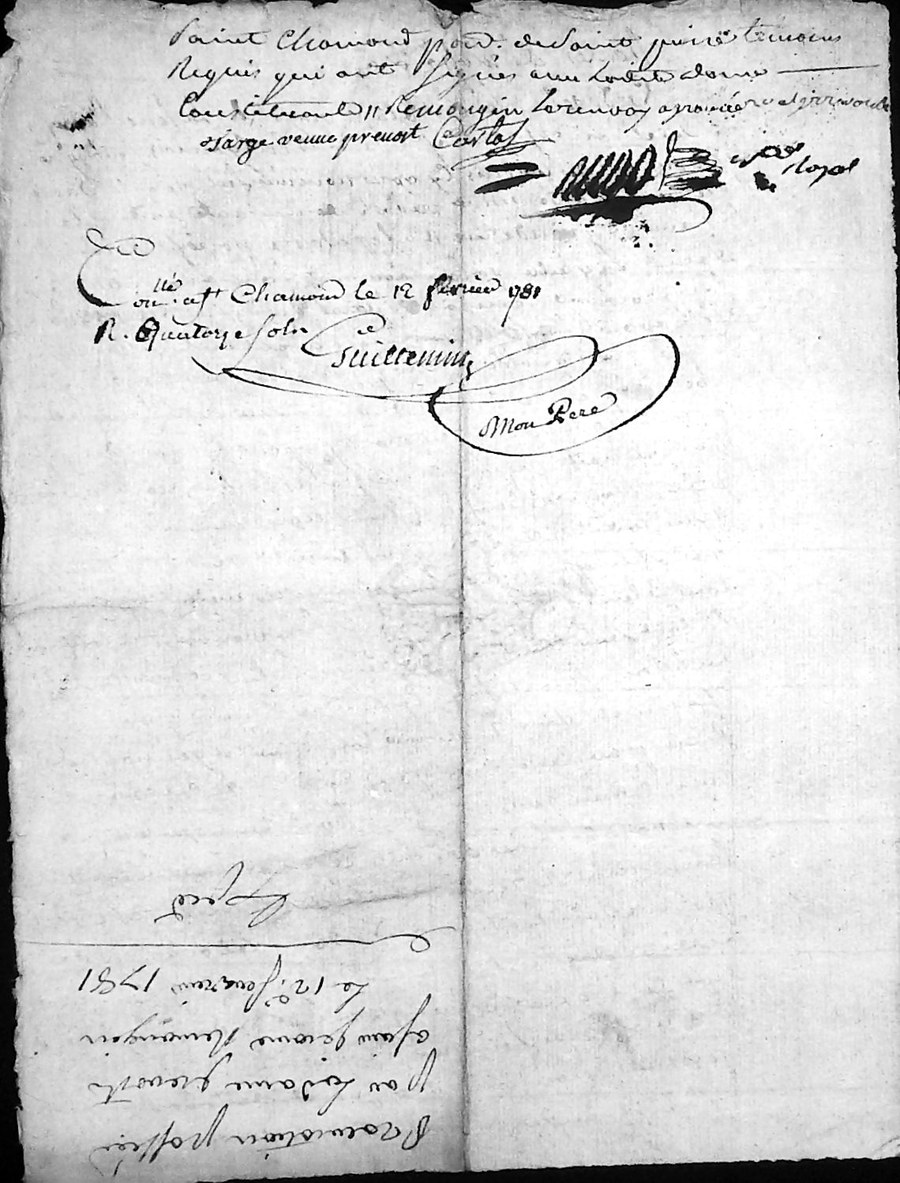 Saint Chamond parr. de Saint pierre temoins
Requis qui ont signés avec ladite dame
Constituant // Remongin le renvoy aprouvé
sarge veuve prevost Carlat
Nore Royal
Conllé a St Chamond le 12 fevrier 1781
R. Quatorze sols
Guillemin
Mon Pere
Procuration passée
par la dame prevost
a Jean Remongin
Le 12e. fevrier 1781